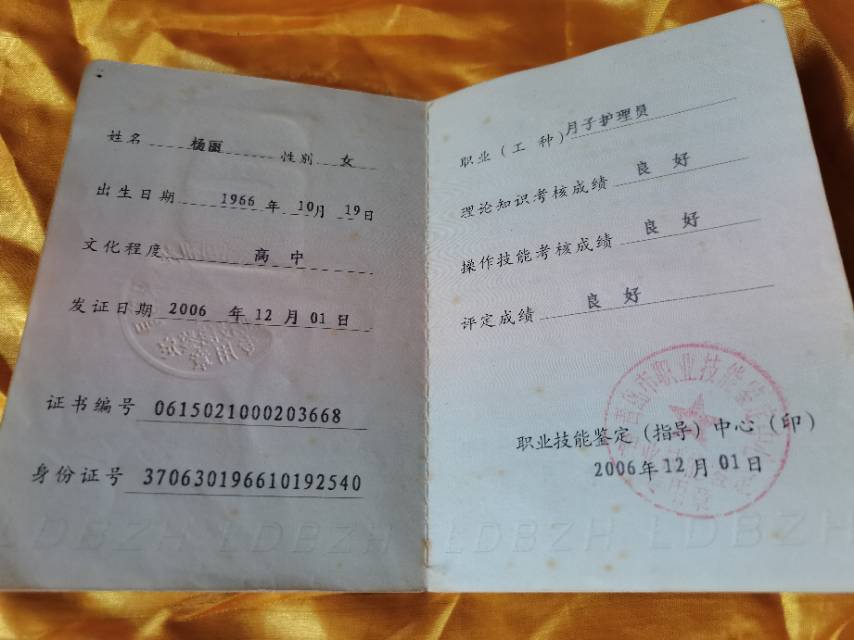 姓名 杨丽 性别 女
出生日期 1966 年 10月 19日
文化程度 高中
发证日期 2006 年 12 月 01 日
证书编号 0615021000203668
身份证号 370630196610192540
LDBZH LDBZH
职业（工 种）月子护理员
理论知识考核成绩 良 好
操作技能考核成绩 良 好
评定成绩 良 好
青岛市职业技能鉴定
职业技能鉴定（指导）中心（印）
2006年 12 月 01 日
LDBZH LDBZH